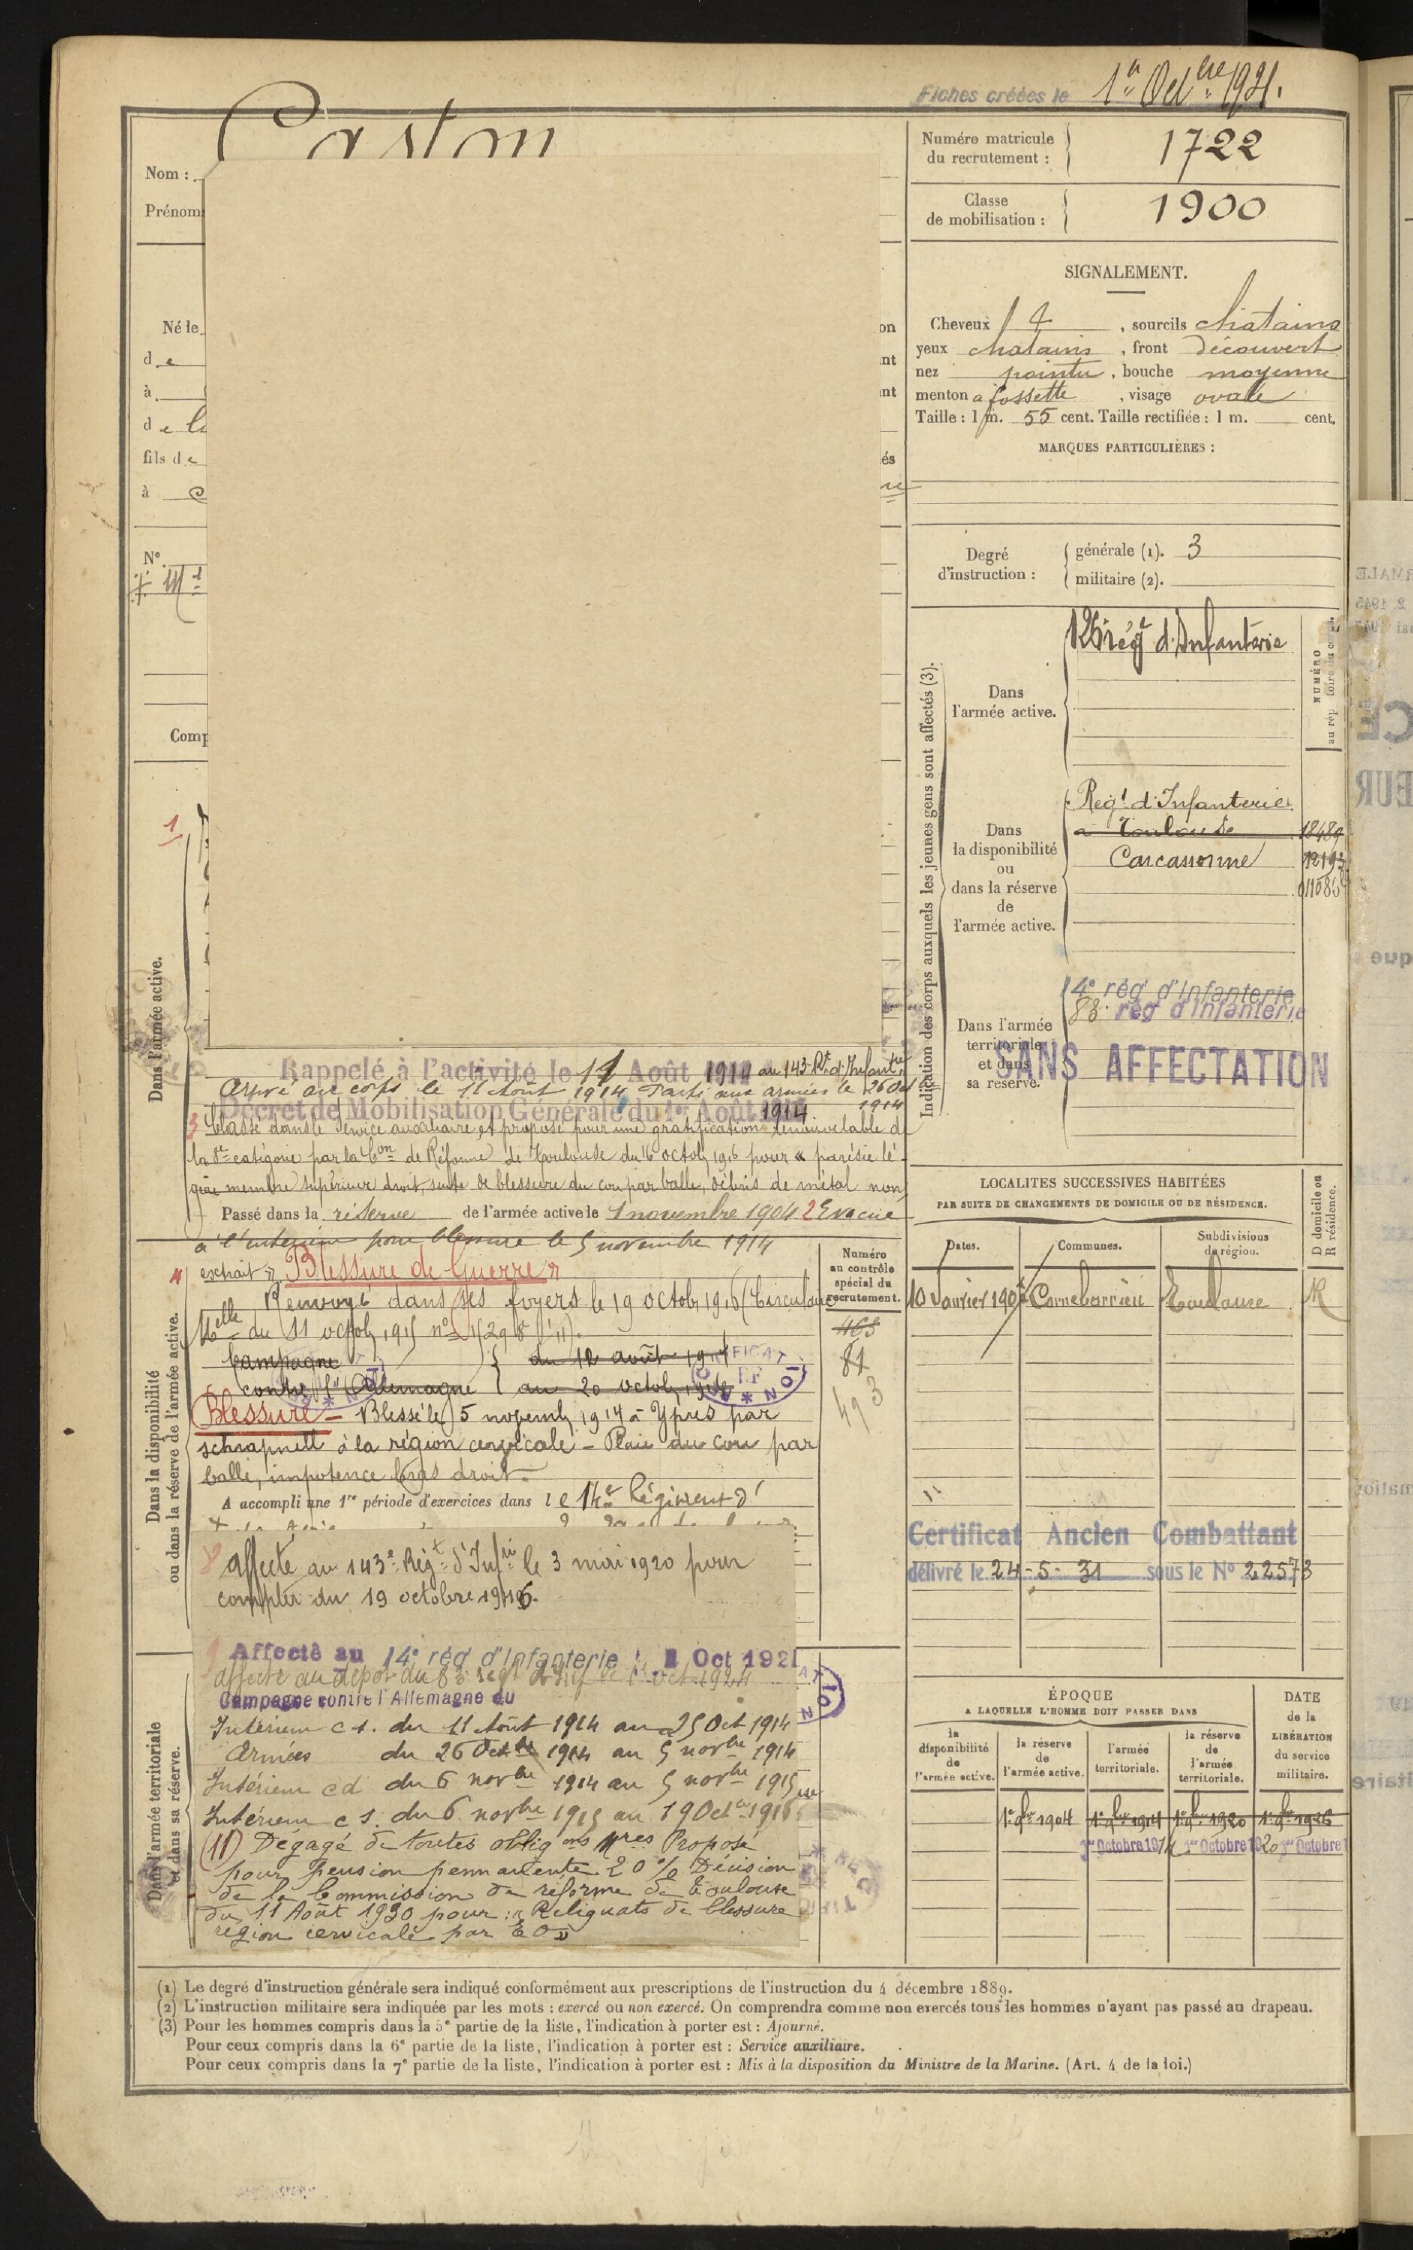 Fiches créées le 1er Octbre 1921.
Caston
Nom :
Prénom
Né le
de
à
de
fils de
à
N°
Comp
Numéro matricule
du recrutement :
1722
Classe
de mobilisation :
1900
SIGNALEMENT.
Cheveux , sourcils chatains
yeux chatains , front découvert
nez pointu , bouche moyenne
menton à fossette , visage ovale
Taille : 1 m. 55 cent. Taille rectifiée : 1 m. cent.
MARQUES PARTICULIÈRES :
Degré
d'instruction :
générale (1). 3
militaire (2).
Indication des corps auxquels les jeunes gens sont affectés (3).
NUMÉRO
Dans
l'armée active.
126e régt d'Infanterie
Dans
la disponibilité
ou
dans la réserve
de
l'armée active.
Régt d'Infanterie
à Toulouse
Carcassonne
Dans l'armée
territoriale
et dans
sa réserve.
14e rég d'Infanterie
83e rég d'Infanterie
SANS AFFECTATION
1
Dans l'armée active.
Rappelé à l'activité le 11 Août 1914 au 143 Rt d'Infantie
Arrivé au corps le 11 Août 1914 Parti aux armées le 26 Oct
1914
Décret de Mobilisation Générale du 1er Août 1914.
3 Classé dans le service auxiliaire et proposé pour une gratification renouvelable de
la 8e catégorie par la Con de Réforme de Toulouse du 16 octob 1916 pour « parésie lé-
gère membre supérieur droit, suite de blessure du cou par balle, débris de métal non
Passé dans la réserve de l'armée active le 1 novembre 1904 2 Evacué
à l'intérieur pour blessure le 5 novembre 1914
Dans la disponibilité
ou dans la réserve de l'armée active.
Numéro
au contrôle
spécial du
recrutement.
465
81
493
extrait » Blessure de Guerre »
Renvoyé dans ses foyers le 19 octob 1916 (Circulaire
Mlle du 11 octob 1915 no
Campagne
contre l'Allemagne
du 12 août 1914
au 20 octob 1916
Blessure – Blessé le 5 novemb 1914 à Ypres par
schrapnell à la région cervicale – Plaie du cou par
balle, impotence bras droit.
A accompli une 1re période d'exercices dans le 14e Régiment d'
8 Affecté au 143e Régt d'Infie le 3 mai 1920 pour
compter du 19 octobre 1916.
9 Affecté au 14e rég d'Infanterie 1 Oct 1921
affecté au dépôt du 83e régt d'Inf le 1 oct 1924
Campagne contre l'Allemagne du
Dans l'armée territoriale
et dans sa réserve.
Intérieur c s. du 11 Août 1914 au 25 Oct 1914
Armées du 26 Octbre 1914 au 5 novbre 1914
Intérieur c d du 6 novbre 1914 au 5 novbre 1915
Intérieur c s. du 6 novbre 1915 au 19 Octbre 1916
(11) Dégagé de toutes obligons Mres Proposé
pour Pension permanente 20 % Décision
de la Commission de réforme de Toulouse
du 11 Août 1930 pour : « Reliquats de blessure
région cervicale par E O »
LOCALITES SUCCESSIVES HABITÉES
PAR SUITE DE CHANGEMENTS DE DOMICILE OU DE RÉSIDENCE.
Dates.
Communes.
Subdivisions
de région.
D domicile ou
R résidence.
Cornebarrieu Toulouse R
Certificat Ancien Combattant
délivré le 24-5-31 sous le N° 22573
ÉPOQUE
A LAQUELLE L'HOMME DOIT PASSER DANS
DATE
de la
LIBÉRATION
du service
militaire.
la
disponibilité
de
l'armée active.
la réserve
de
l'armée active.
l'armée
territoriale.
la réserve
de
l'armée
territoriale.
1er 9bre 1904 1er 9bre 1914 1er 9bre 1920 1er 9bre 1926
1er Octobre 1914 1er Octobre 1920 1er Octobre
(1) Le degré d'instruction générale sera indiqué conformément aux prescriptions de l'instruction du 4 décembre 1889.
(2) L'instruction militaire sera indiquée par les mots : exercé ou non exercé. On comprendra comme non exercés tous les hommes n'ayant pas passé au drapeau.
(3) Pour les hommes compris dans la 5e partie de la liste, l'indication à porter est : Ajourné.
Pour ceux compris dans la 6e partie de la liste, l'indication à porter est : Service auxiliaire.
Pour ceux compris dans la 7e partie de la liste, l'indication à porter est : Mis à la disposition du Ministre de la Marine. (Art. 4 de la loi.)